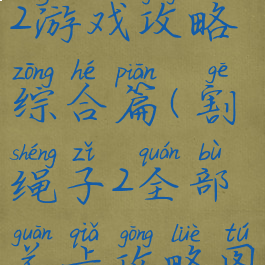 2游戏攻略
zōng hé piān gē
综合篇(割
shéng zǐ quán bù
绳子2全部
guān qiǎ gōng lüè tú
关卡攻略图